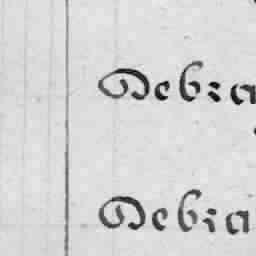 Debra
Debra